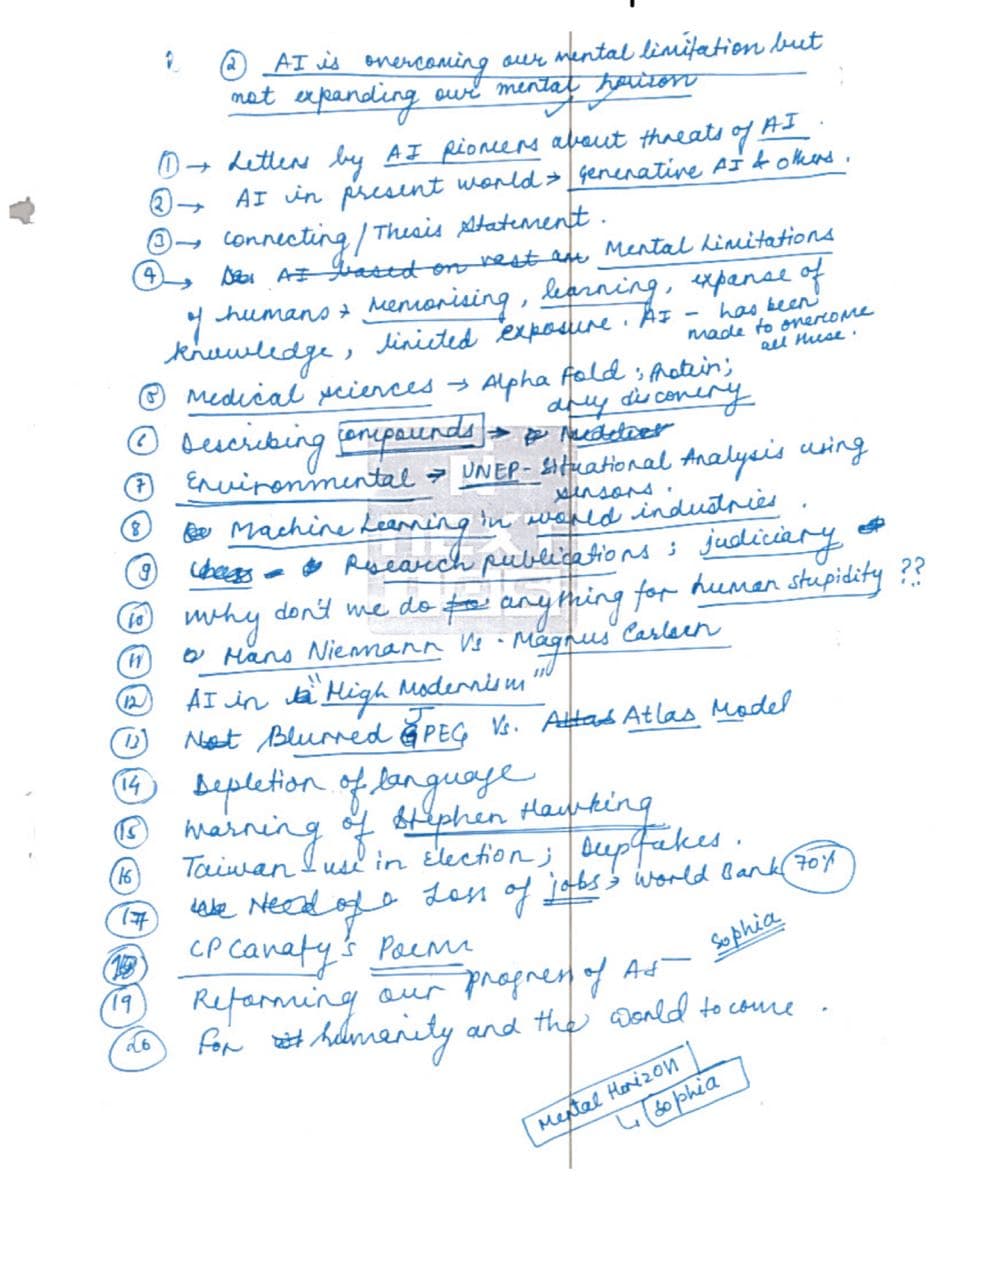 ② AI is overcoming our mental limitation but
not expanding our mental horizon
① → Letters by AI pioneers about threats of AI.
② → AI in present world → generative AI & others.
③ → Connecting / Thesis Statement.
④ → AI based on vast Mental Limitations
of humans → Memorising, learning, expanse of
knowledge, limited exposure. AI - has been
made to overcome
all these.
⑤ Medical sciences → Alpha Fold; Protein;
drug discovery
⑥ Describing compounds →
⑦ Environmental → UNEP - Situational Analysis using
sensors.
⑧ Machine Learning in world industries.
⑨ Research publications; judiciary
⑩ Why don't we do for anything for human stupidity ??
⑪ Hans Niemann Vs. Magnus Carlsen
⑫ AI in "High Modernism"
⑬ Not Blurred JPEG Vs. Atlas Atlas Model
⑭ Depletion of language
⑮ Warning of Stephen Hawking
⑯ Taiwan - use in Election; Deepfakes.
⑰ Need of Loss of jobs → World Bank 70%
⑱ CP Canafy's Poem
⑲ Reforming our progress of AI - Sophia
⑳ For humanity and the world to come.
Mental Horizon
↳ Sophia